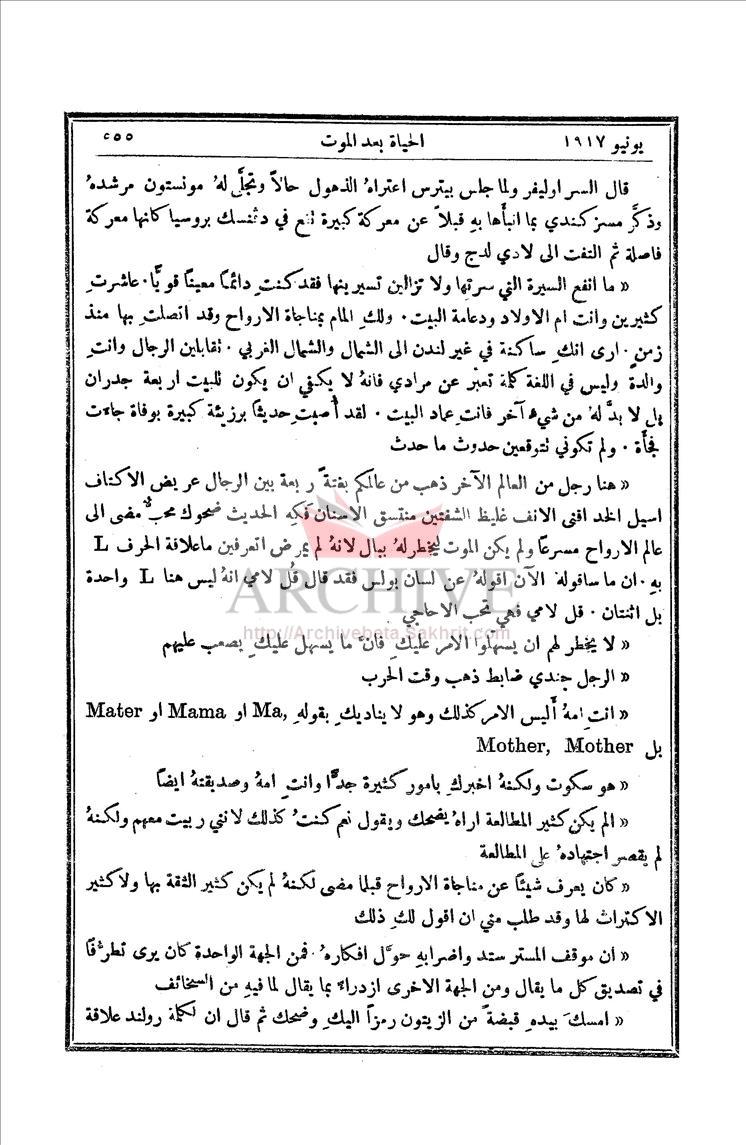 يونيو ١٩١٧ الحياة بعد الموت ٥٥٥
قال السر اوليفر ولما جلس بيترس اعتراهُ الذهول حالاً وتجلَّى لهُ مونستون مرشدهُ
وذكَّر مسز كندي بما انبأها بهِ قبلاً عن معركة كبيرة تقع في دفنسك بروسيا كانها معركة
فاصلة ثم التفت الى لادي لدج وقال
« ما انفع السيرة التي سرتِها ولا تزالين تسيرينها فقد كنتِ دائماً معيناً قويًّا٠ عاشرتِ
كثيرين وانت ام الاولاد ودعامة البيت٠ ولكِ المام بمناجاة الارواح وقد اتصلتِ بها منذ
زمن٠ ارى انكِ ساكنة في غير لندن الى الشمال والشمال الغربي٠ تقابلين الرجال وانتِ
والدة وليس في اللغة كلمة تعبّر عن مرادي فانهُ لا يكفي ان يكون للبيت اربعة جدران
بل لا بدَّ لهُ من شيء آخر فانتِ عماد البيت٠ لقد أُصبتِ حديثاً برزيئة كبيرة بوفاة جاءت
فجأة٠ ولم تكوني تتوقعين حدوث ما حدث
« هنا رجل من العالم الآخر ذهب من عالمكم بغتةً ربعة بين الرجال عريض الاكتاف
اسيل الخد اقنى الانف غليظ الشفتين منتسق الاسنان فكِه الحديث ضحوك محبٌّ مضى الى
عالم الارواح مسرعاً ولم يكن الموت ليخطر لهُ ببال لانهُ لم يمرض اتعرفين ما علاقة الحرف L
بهِ٠ ان ما سافولهُ الآن اقولهُ عن لسان بولس فقد قال قُل لامي انهُ ليس هنا L واحدة
بل اثنتان٠ قل لامي فهي تحب الاحاجي
ARCHIVE
http://Archivebeta.Sakhrit.com
« لا يخطر لهم ان يسهّلوا الامر عليكِ فانَّ ما يسهل عليكِ يصعب عليهم
« الرجل جندي ضابط ذهب وقت الحرب
« انتِ امهُ أليس الامر كذلك وهو لا يناديكِ بقولهِ Ma, او Mama او Mater
بل Mother, Mother
« هو سكوت ولكنهُ اخبركِ بامور كثيرة جدًّا وانتِ امهُ وصديقتهُ ايضاً
« الم يكن كثير المطالعة اراهُ يضحك ويقول نعم كنتُ كذلك لانني ربيت معهم ولكنهُ
لم يقصر اجتهادهُ على المطالعة
« كان يعرف شيئاً عن مناجاة الارواح قبلما مضى لكنهُ لم يكن كثير الثقة بها ولا كثير
الاكتراث لها وقد طلب مني ان اقول لكِ ذلك
« ان موقف المستر ستد واضرابهِ حوَّل افكارهُ٠ فمن الجهة الواحدة كان يرى تطرُّفًا
في تصديق كل ما يقال ومن الجهة الاخرى ازدراءً بما يقال لما فيهِ من السخائف
« امسكَ بيدهِ قبضةً من الزيتون رمزاً اليكِ وضحك ثم قال ان لكلمة رولند علاقة